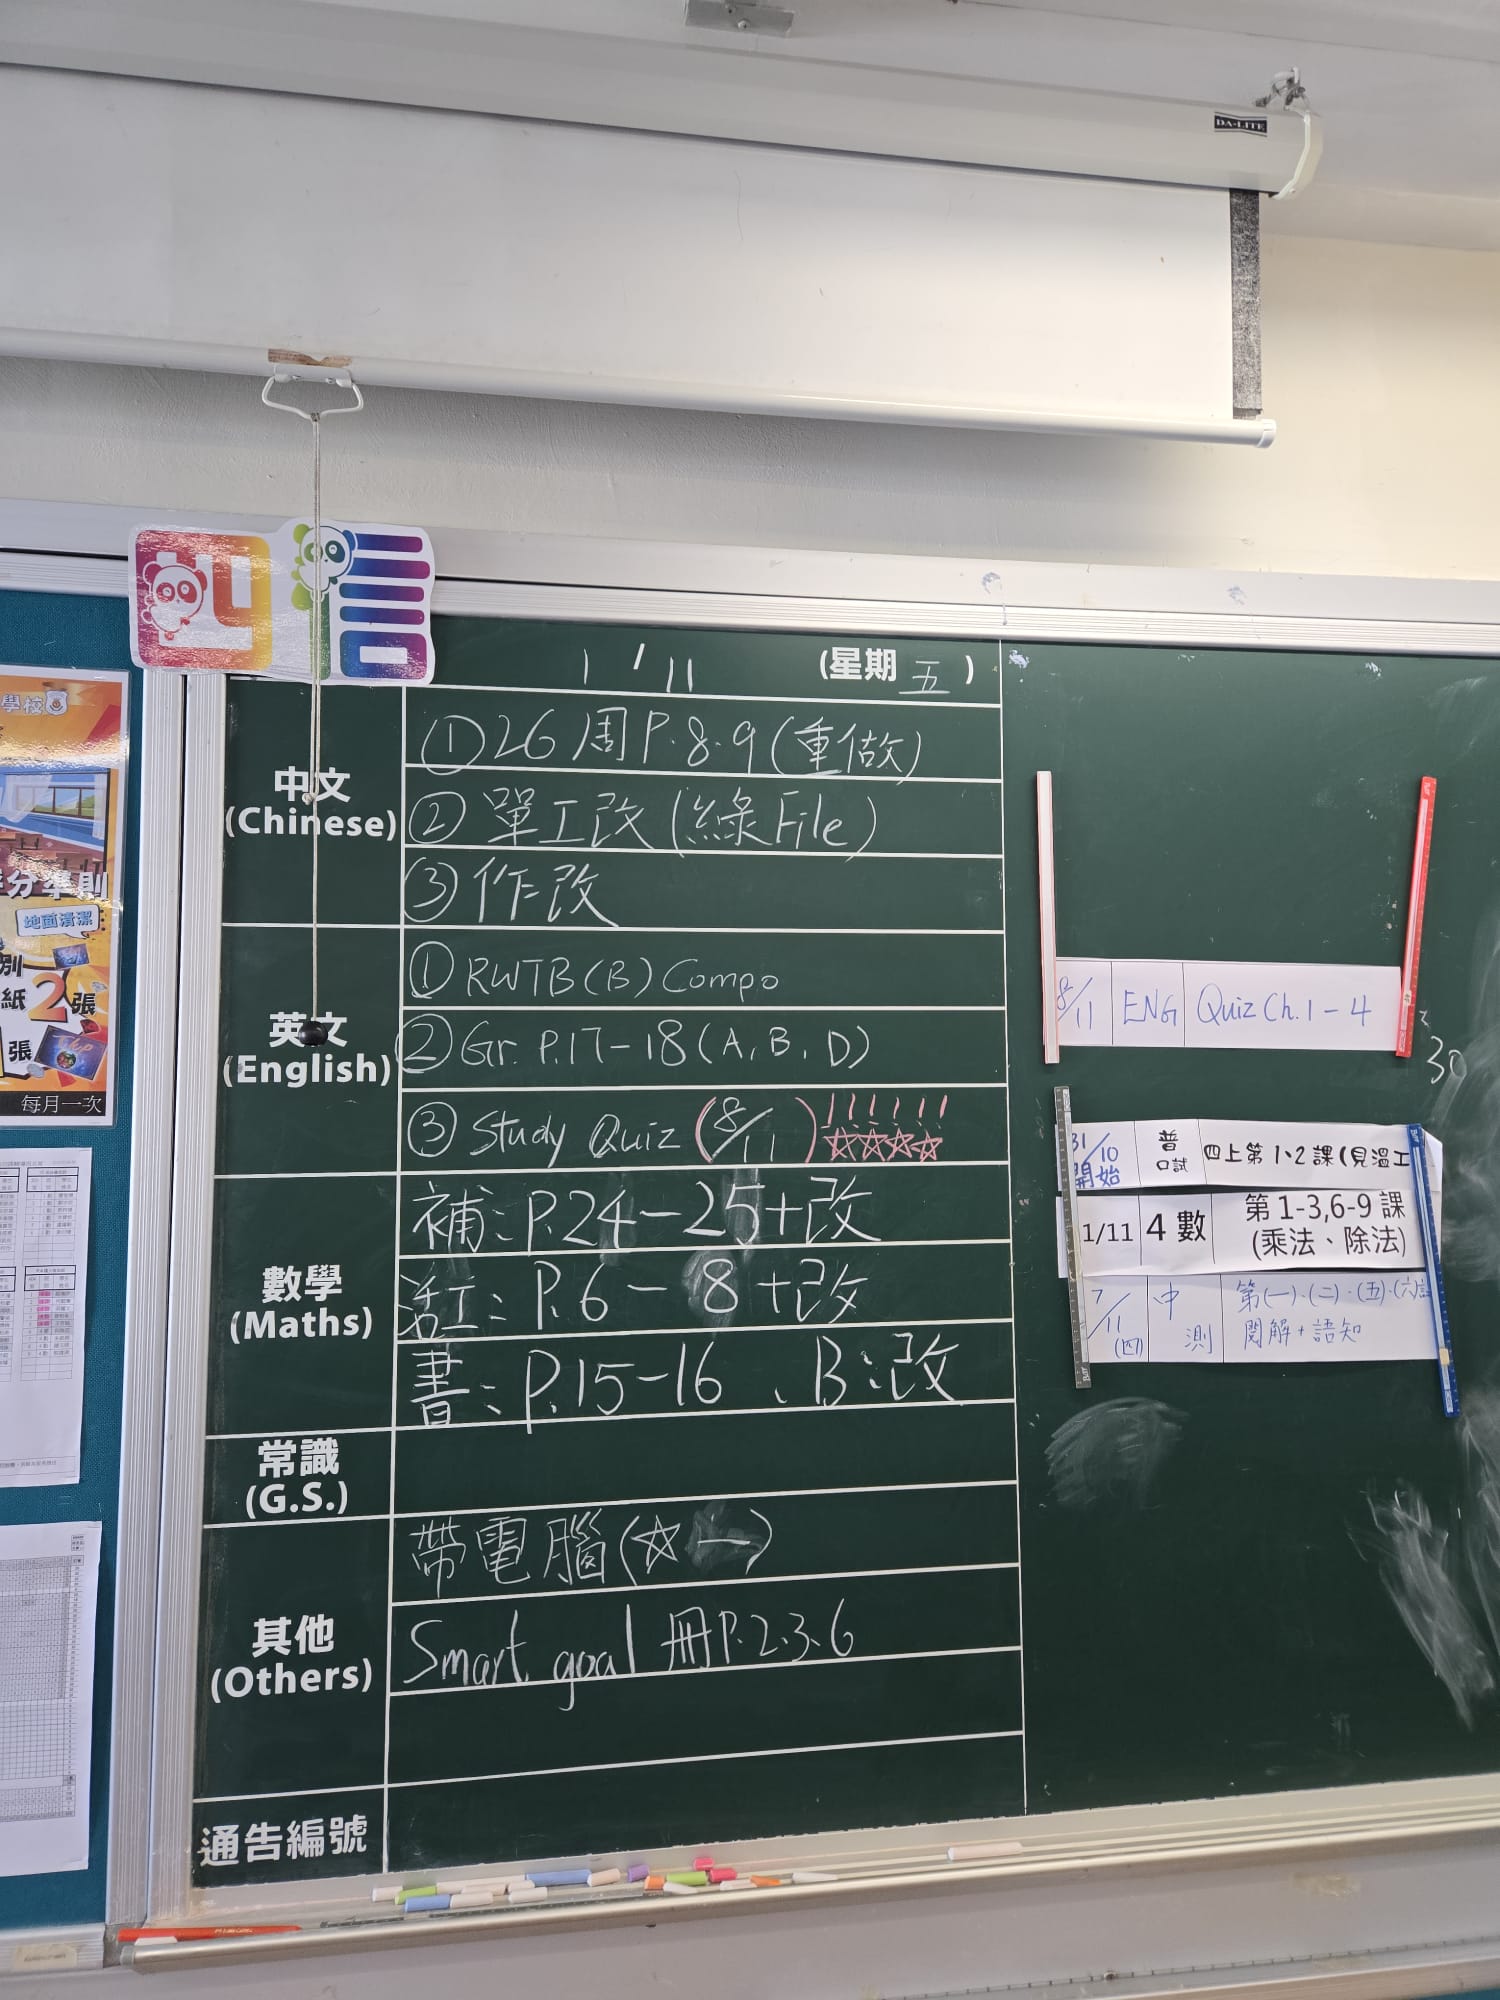 DA-LITE
四信
1/11 (星期五)
中文
(Chinese)
①26周P.8.9(重做)
②單工改(綠File)
③作改
英文
(English)
①RWTB(B) Compo
②Gr. P.17-18(A, B, D)
③Study Quiz (8/11)!!!!!!
☆☆☆☆
數學
(Maths)
補: P.24-25+改
活工: P.6-8+改
書: P.15-16、B:改
常識
(G.S.)
其他
(Others)
帶電腦(☆一)
Smart goal 冊P.2.3.6
通告編號
8/11 ENG Quiz Ch.1-4
30
31/10開始 普口試 四上第1、2課(見溫工
1/11 4數 第1-3,6-9課
(乘法、除法)
7/11(四) 中測 第(一)、(二)、(五)、(六)
閱解+語知
學校
分準則
地面清潔
別
紙2張
張
每月一次